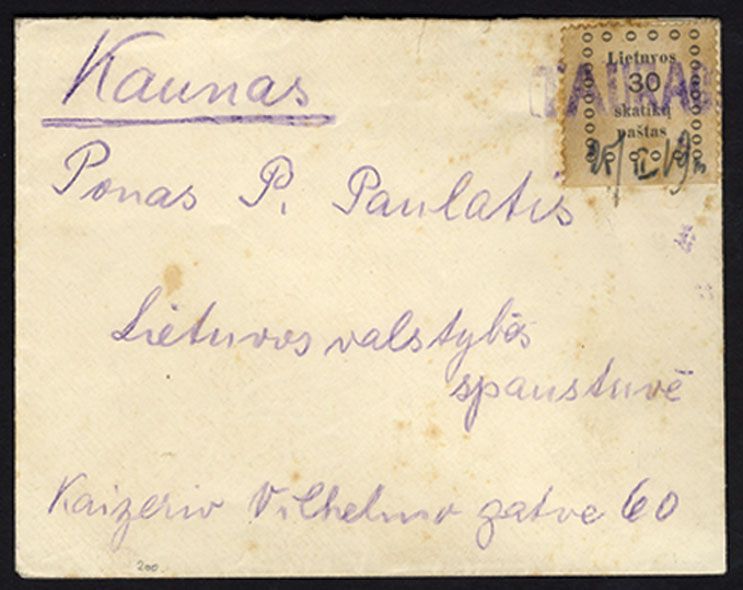 Kaunas
Lietuvos
30
skatikų
paštas
Ponas P. Paulatis
Lietuvos valstybės
spaustuvė
Kaizerio Vilhelmo gatve 60
200.